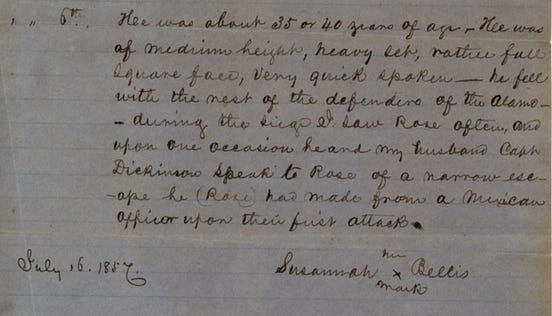 " " 6th. He was about 35 or 40 years of age, He was
of medium height, heavy set, rather full
square face, very quick spoken — he fell
with the rest of the defenders of the Alamo—
— during the siege I saw Rose often, and
upon one occasion heard my husband Capt
Dickinson speak to Rose of a narrow esc-
ape he (Rose) had made from a Mexican
officer upon their first attack.
her
July 16. 1857. Susannah x Bellis
mark